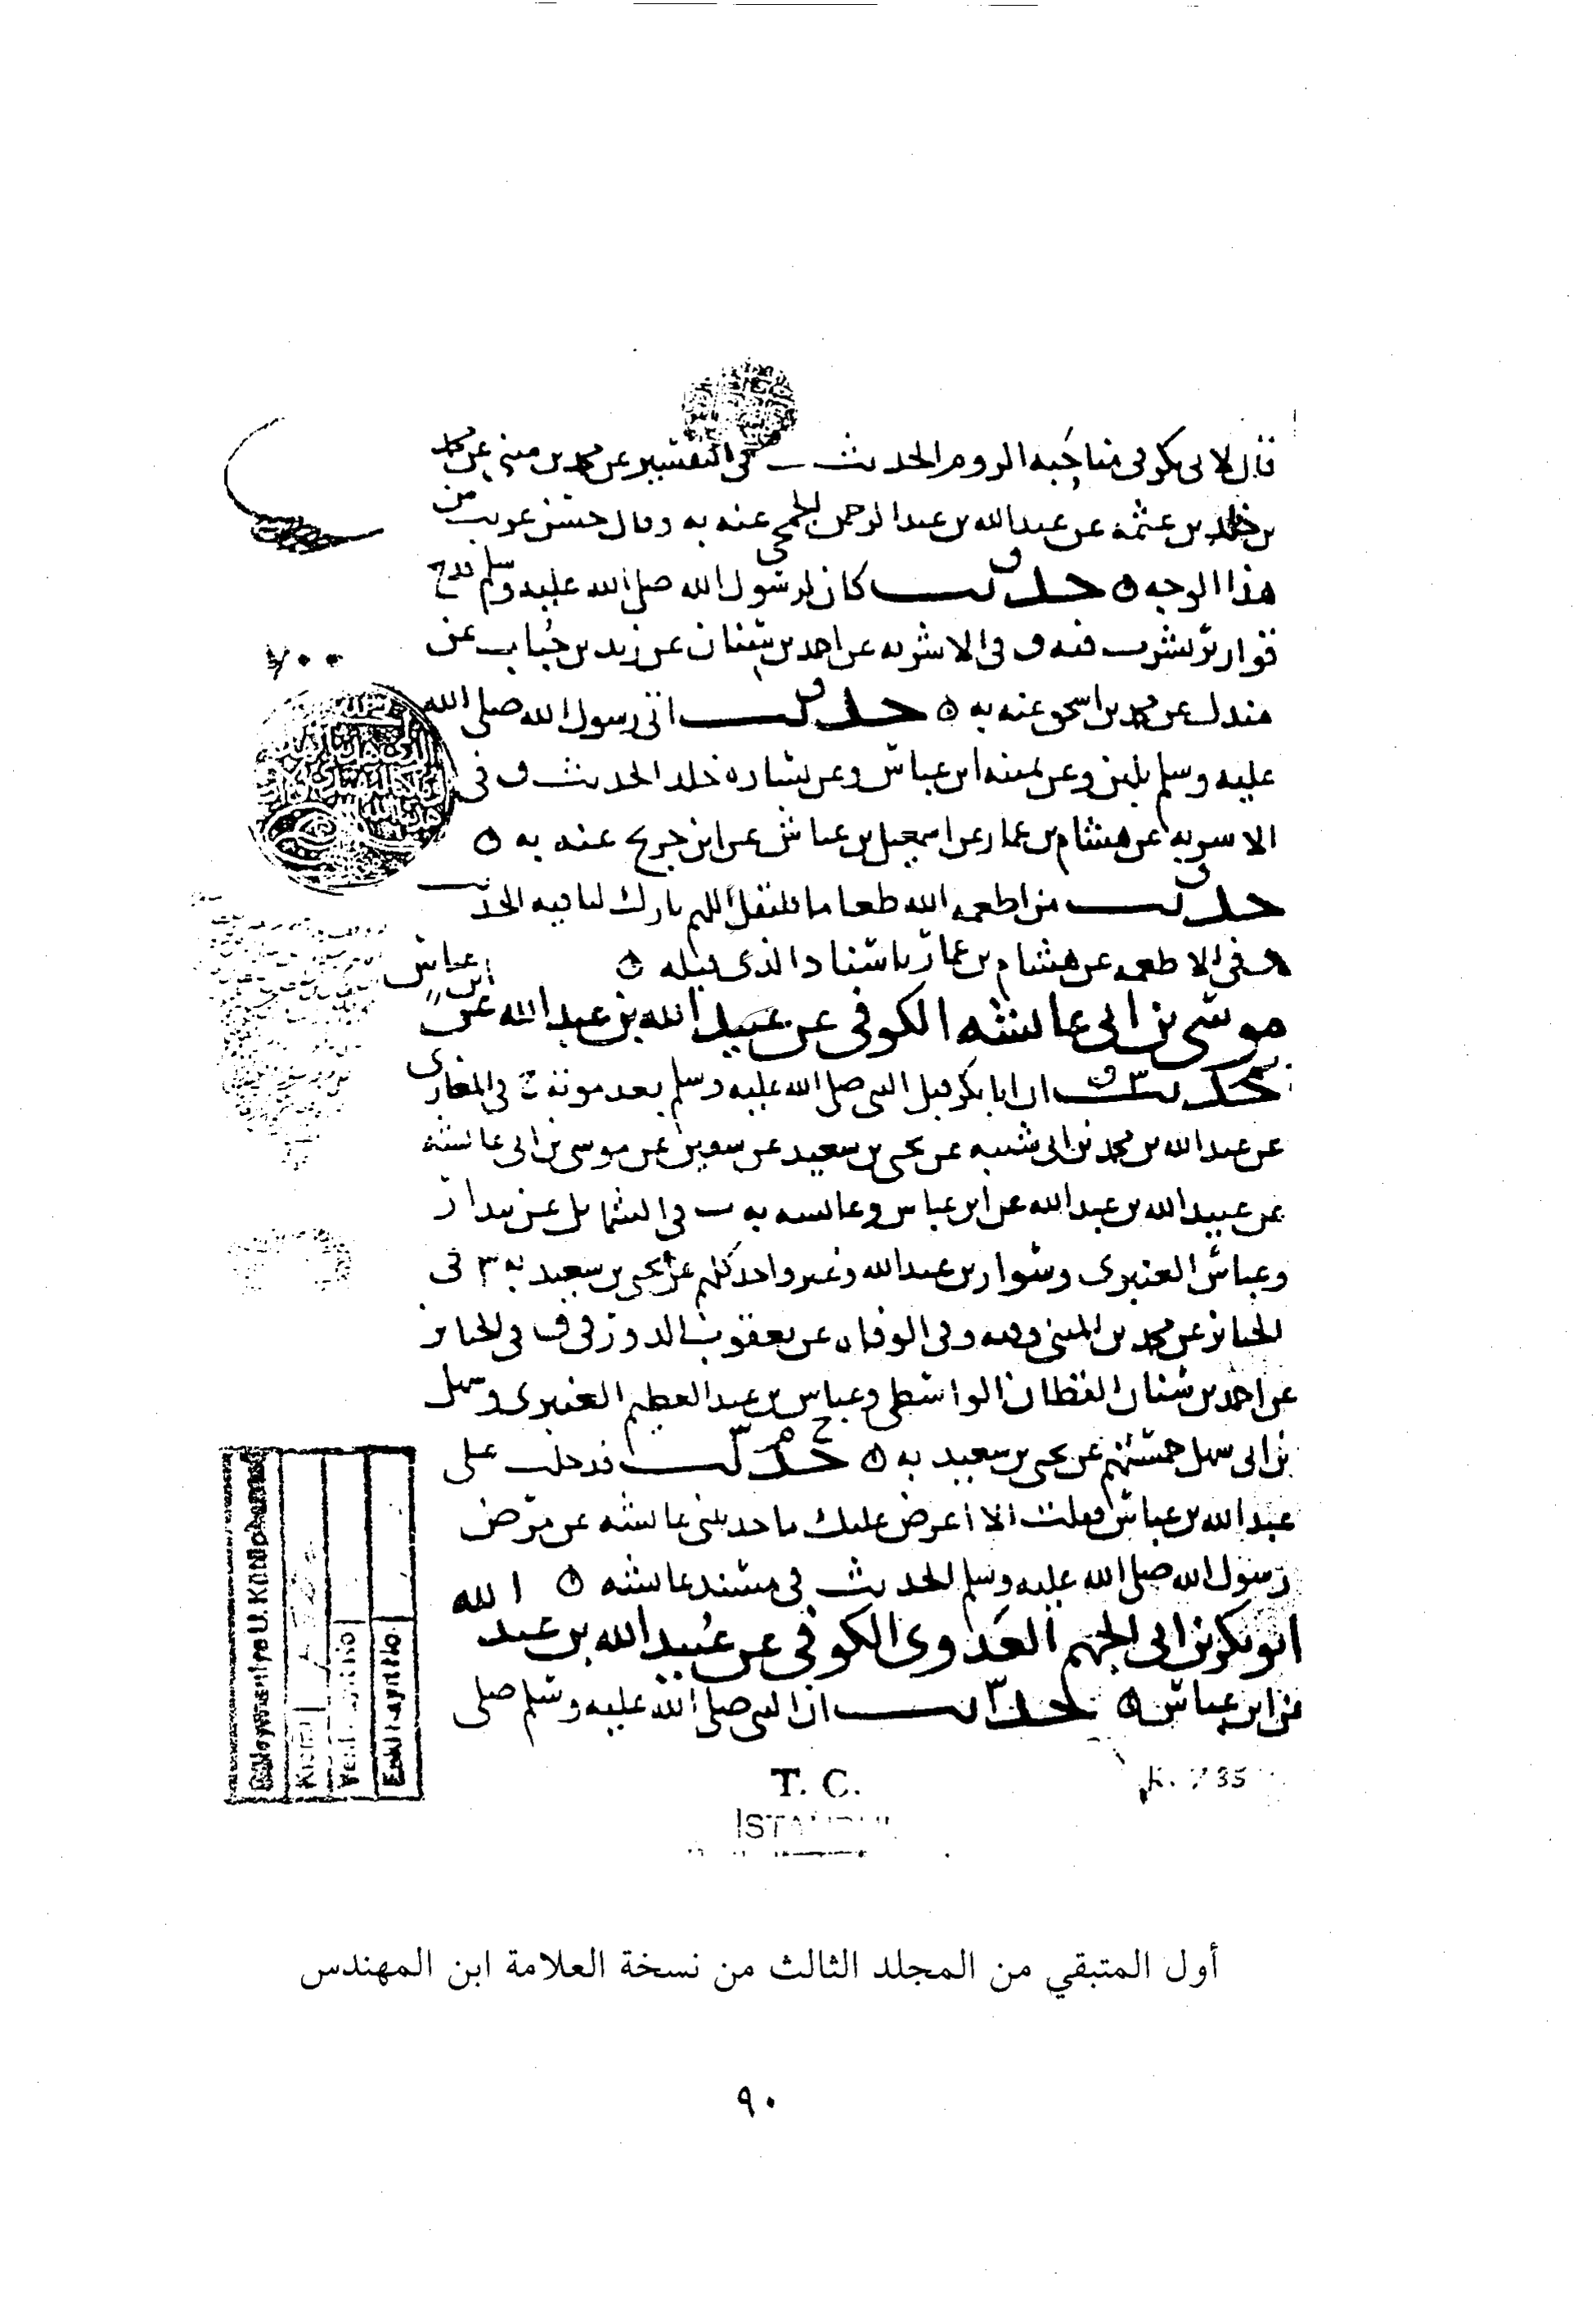 قال لابي بكر في مناحبه الروم الحديث ت في التفسير عن محمد بن مثنى عن محمد
بن خالد بن عثمة عن عبدالله بن عبدالرحمن الجمحي عنه به وقال حسن غريب من
هذا الوجه ه حديث ق كان لرسول الله صلى الله عليه وسلم قدح
قوارير يشرب فيه ق في الاشربه عن احمد بن سنان عن زيد بن حباب عن
مندل عن محمد بن اسحق عنه به ه حديث ق اتى رسول الله صلى الله
عليه وسلم بلبن وعن يمينه ابن عباس وعن يساره خلد الحديث ق في
الاشربه عن هشام بن عمار عن اسمعيل بن عياش عن ابن جريج عنه به ه
حديث ق من اطعمه الله طعاما فليقل اللهم بارك لنا فيه الحديث
ق في الاطعمه عن هشام بن عمار باسناد الذي قبله ه
موسى بن ابي عائشه الكوفي عن عبيد الله بن عبد الله عن ابن عباس
حديث ان ابا بكر قبل النبي صلى الله عليه وسلم بعد موته خ في المغازى
عن عبدالله بن محمد بن ابي شيبه عن يحيى بن سعيد عن سفين عن موسى بن ابي عائشه
عن عبيد الله بن عبد الله عن ابن عباس وعائشه به ت في الشمائل عن بندار
وعباس العنبري وسوار بن عبدالله وغير واحد كلهم عن يحيى بن سعيد به س في
الجنائز عن محمد بن المثنى وفيه وفي الوفاه عن يعقوب الدورقي ق في الجنائز
عن احمد بن سنان القطان الواسطي وعباس بن عبد العظيم العنبري وسهل
بن ابي سهل خمستهم عن يحيى بن سعيد به ه حديث خ م س دخلت على
عبدالله بن عباس فقلت الا اعرض عليك ما حدثتني عائشه عن مرض
رسول الله صلى الله عليه وسلم الحديث في مسند عائشه ه
ابو بكر بن ابي الجهم العدوى الكوفي عن عبيد الله بن عبد الله
عن ابن عباس ه حديث س ان النبي صلى الله عليه وسلم صلى
Süleymaniye U. Kütüphanesi
Eski kayıt No.
T. C.
أول المتبقي من المجلد الثالث من نسخة العلامة ابن المهندس
٩٠